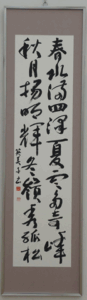 春水満四澤夏雲多奇峰
秋月揚明輝冬嶺秀孤松